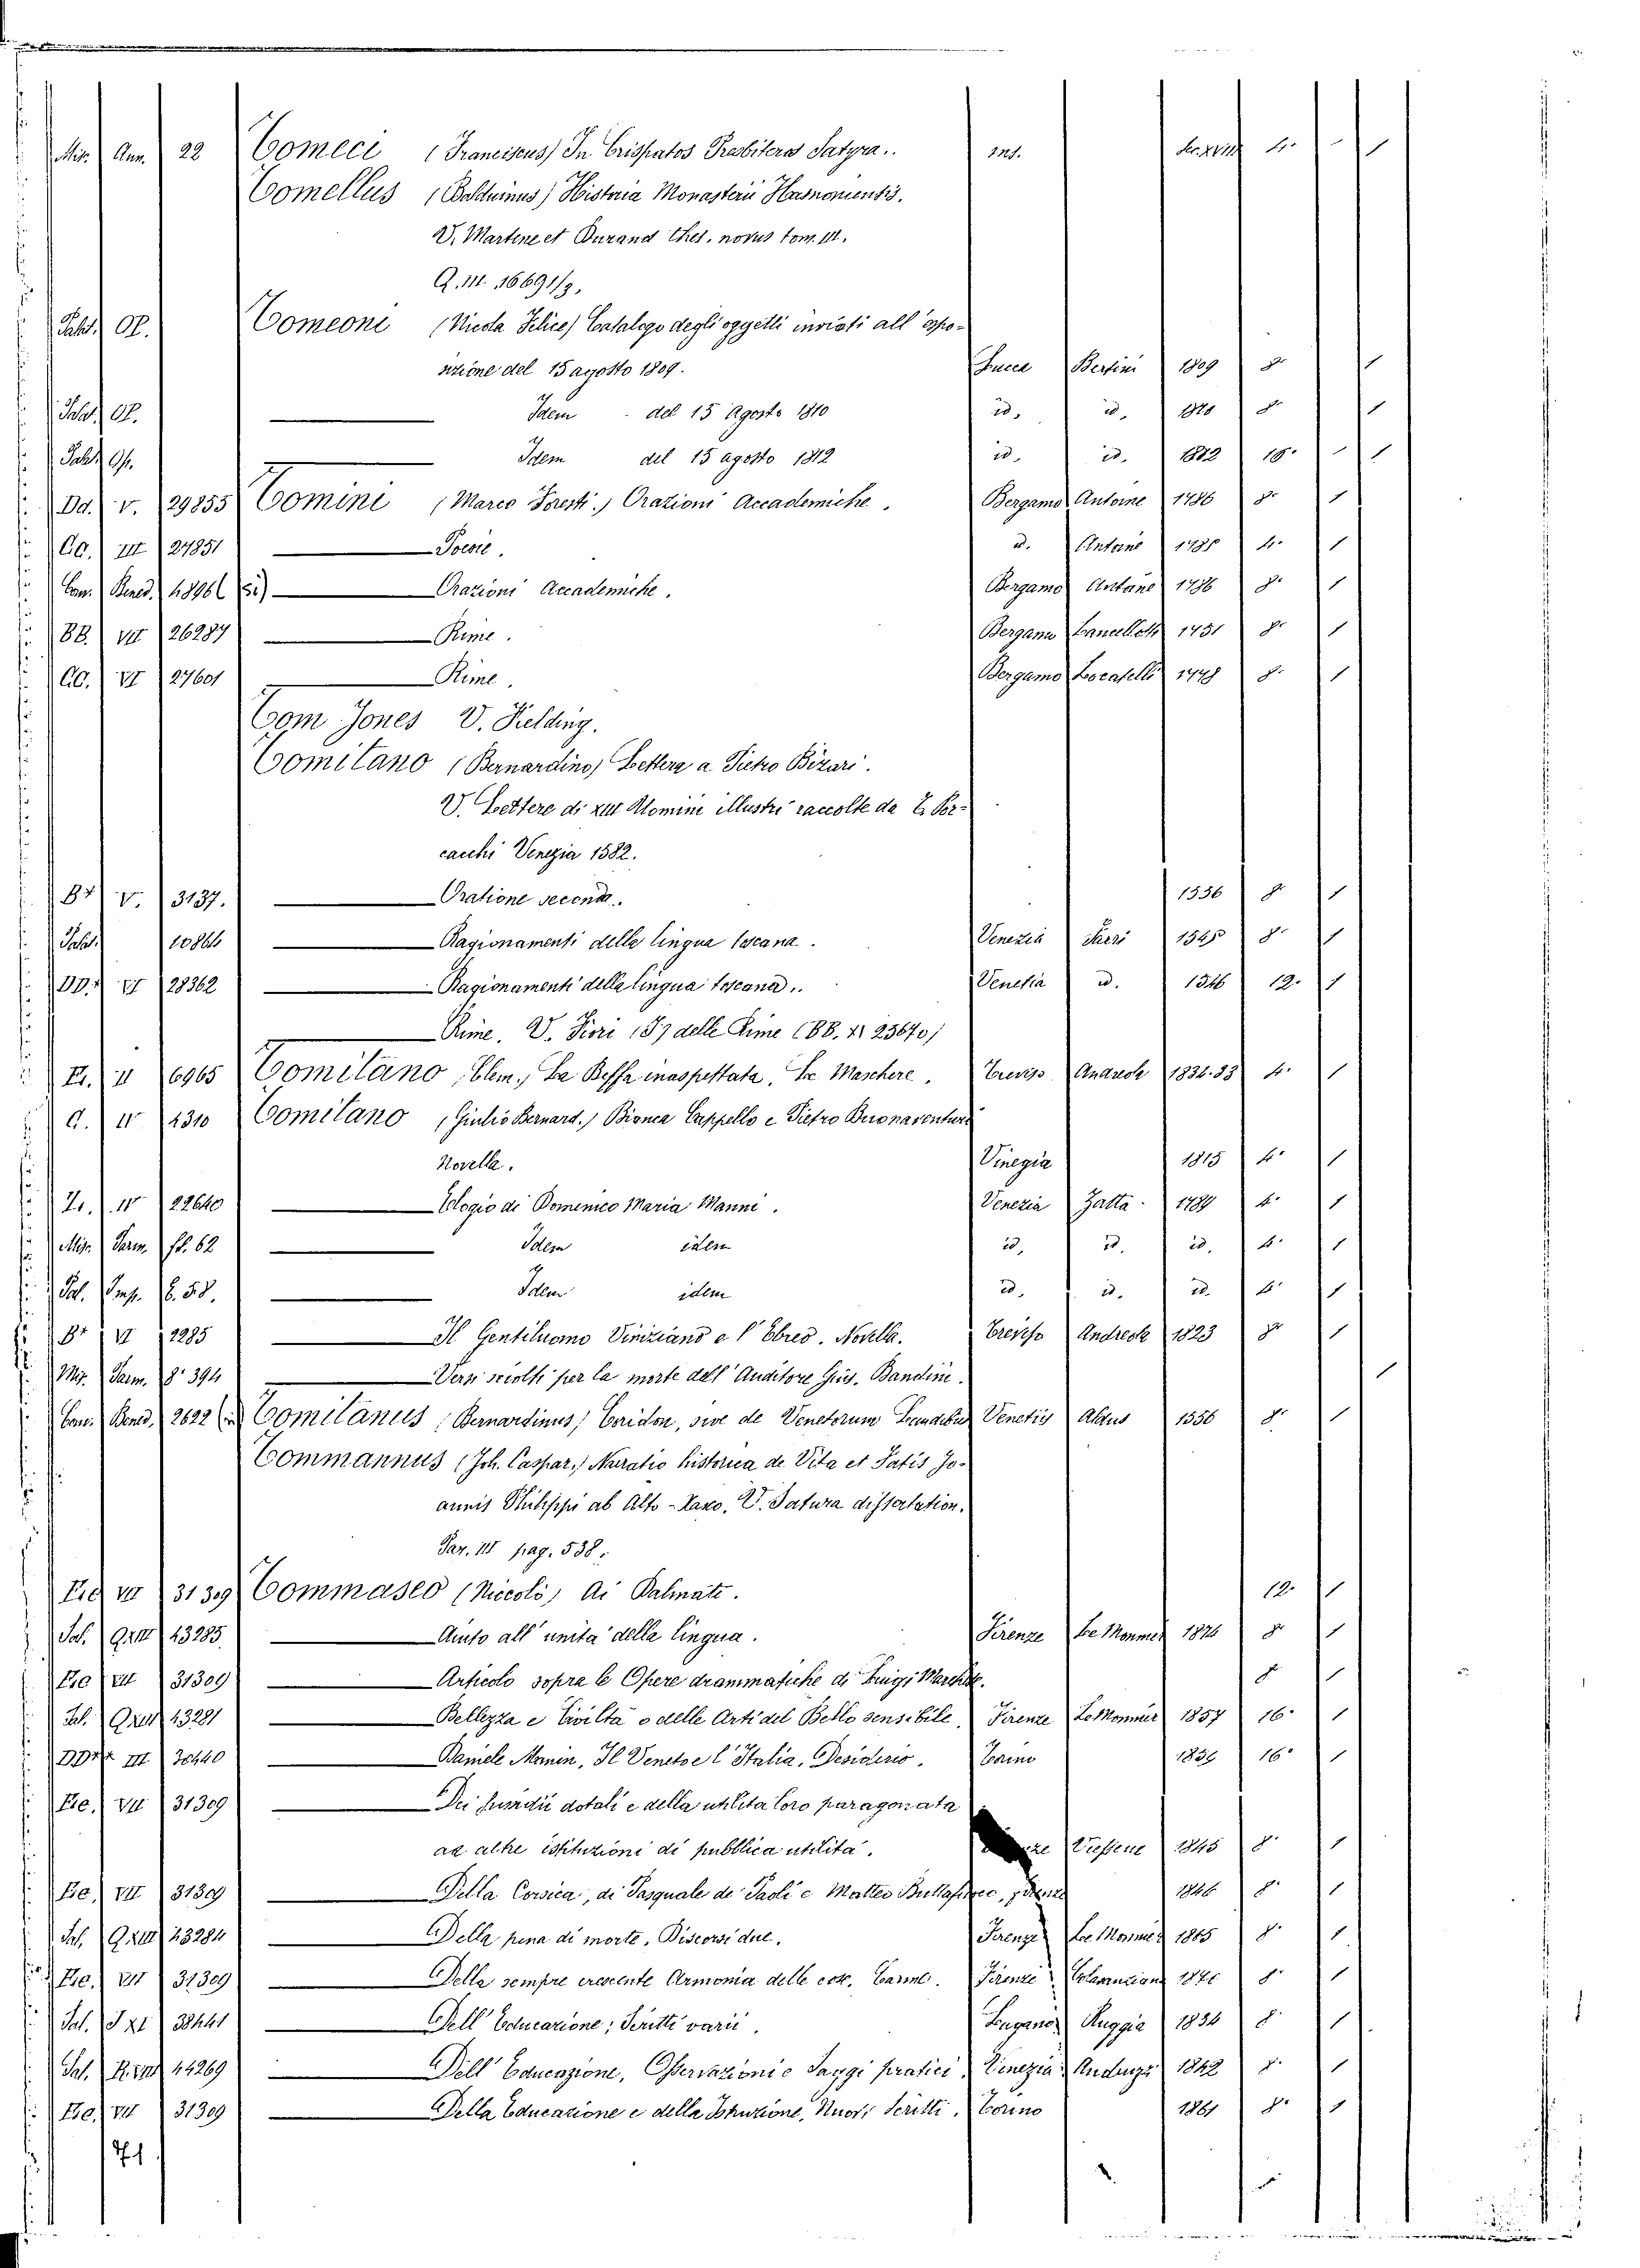 Mis. Ann. 22 Tomeci (Franciscus) In Crispatos Presbiteros Satyra.. ms. Sec. XVIII 4.° 1
Tomellus (Balduinus) Historia Monasterii Hasnoniensis.
V. Martene et Durand thes. novus tom. III.
Q. III. 16691/3.
Palat. Op. Tomeoni (Nicola Felice) Catalogo degli oggetti inviati all' espo-
sizione del 15 agosto 1809. Lucca Bertini 1809 8° 1
Palat. Op. Idem - del 15 Agosto 1810 id. id. 1810 8° 1
Palat. Op. Idem del 15 agosto 1812 id. id. 1812 18° 1
Dd. V. 29855 Tomini (Marco Foresti.) Orazioni Accademiche. Bergamo Antoine 1786 8° 1
CC. III 27851 Poesie. id. Antoine 4° 1
Com. Bened. 4896 Orazioni Accademiche. Bergamo Antoine 1786 8° 1
BB. VII 26287 Rime. Bergamo Lancellotti 1751 8° 1
CC. VI 27601 Rime. Bergamo Locatelli 8° 1
Tom Jones V. Fielding.
Tomitano (Bernardino) Lettera a Pietro Bizari.
V. Lettere di XIII Uomini illustri raccolte da T. Por-
cacchi Venezia 1582.
V. 3137. Oratione seconda. 1556 8° 1
Palat. 10864 Ragionamenti della lingua toscana. Venezia 1545 8° 1
VI 28362 Ragionamenti della lingua toscana.. Venetia id. 1546 12° 1
Rime. V. Fiori (I) delle Rime (BB. XI 23670)
II 6965 Tomitano, Clem., La Beffa inaspettata. Le Maschere. Treviso Andreola 1832-33 4° 1
IV 4310 Tomitano, (Giulio Bernard.) Bianca Cappello e Pietro Buonaventuri
Novella. Vinegia 1815 4° 1
IV 22640 Elogio di Domenico Maria Manni. Venezia Zatta 1789 4° 1
Mis. Parm. fol. 62 Idem idem id. id. id. 4° 1
Pal. 6. 58. Idem idem id. id. id. 4° 1
VI 2285 Il Gentiluomo Viniziano e l' Ebreo. Novella. Treviso Andreola 1823 8° 1
Mis. Parm. 8° 394 Versi sciolti per la morte dell' Auditore Gius. Bandini. 1
Com. Bened. 2622 Tomitanus (Bernardinus) Coridon, sive de Venetorum Laudibus Venetiis Aldus 1556 8° 1
Tommannus (Joh. Caspar.) Narratio historica de Vita et Fatis Jo-
annis Philippi ab Alto-Saxo. V. Satura dissertation.
Par. III pag. 538.
VII 31309 Tommaseo (Niccolò) Ai Dalmati. 12° 1
Pal. 43285. Aiuto all' unità della lingua. Firenze Le Monnier 8° 1
VII 31309 Articolo sopra le Opere drammatiche di Luigi Marchesi. 8° 1
Pal. 43281 Bellezza e Civiltà o delle Arti del Bello sensibile. Firenze Le Monnier 1857 16° 1
III 30440 Daniele Manin, Il Veneto e l' Italia, Desiderio. Torino 16° 1
VII 31309 Dei sussidii dotali e della utilità loro paragonata
ad altre istituzioni di pubblica utilità. 1845 8° 1
VII 31309 Della Corsica, di Pasquale de' Paoli e Matteo 1846 8° 1
Pal. 43284 Della pena di morte, Discorsi due. Firenze Le Monnier 1865 8° 1
VII 31309 Della sempre crescente Armonia delle cose, Carme. Firenze 8° 1
Pal. I XI 38441 Dell' Educazione; Scritti varii. Lugano Ruggia 1834 8° 1
Pal. 44269 Dell' Educazione, Osservazioni e Saggi pratici. Venezia 1842 8° 1
VII 31309 Della Educazione e della Istruzione, Nuovi Scritti. Torino 1861 8° 1
71